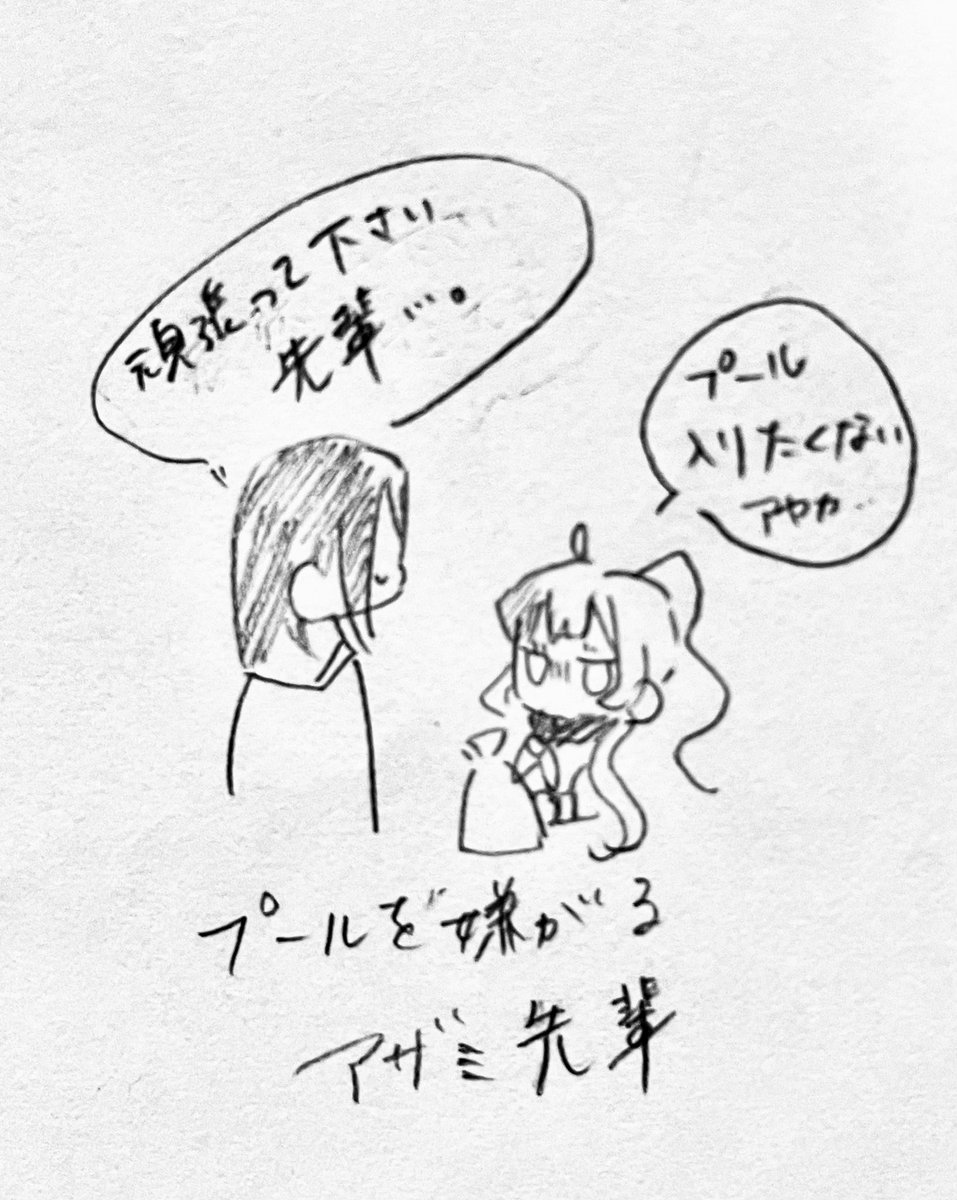 頑張って下さい
先輩…。
プール
入りたくない
アヤカ…
プールを嫌がる
アザミ先輩